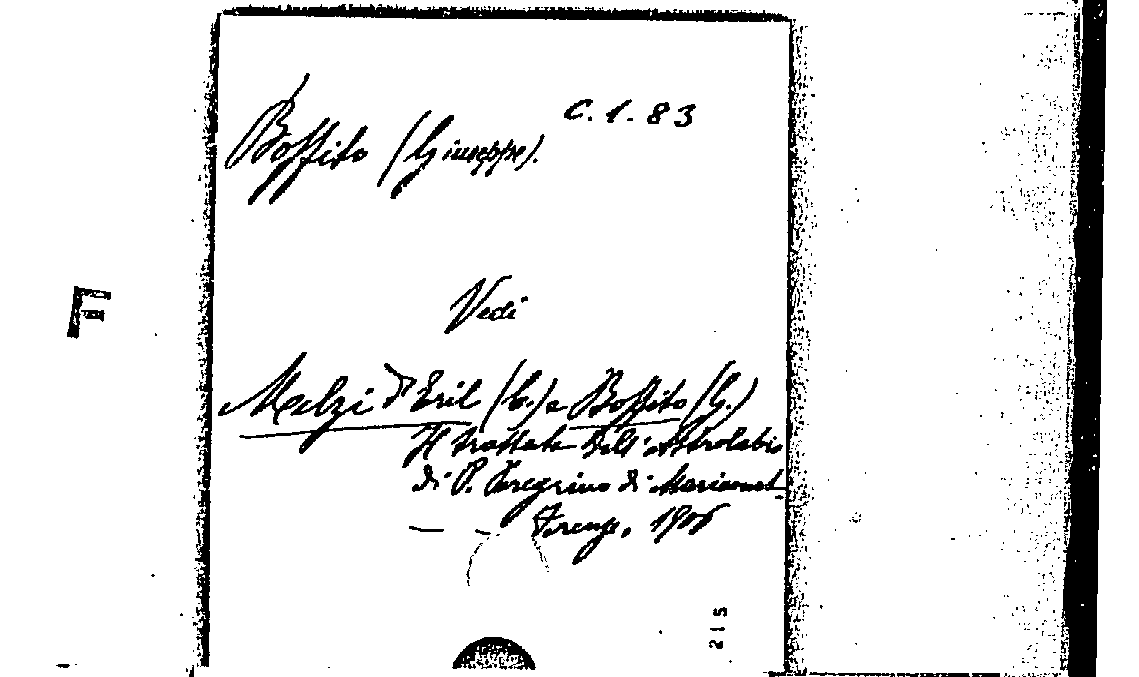 C. 1. 83
Boffito (Giuseppe).
F
Vedi
Melzi d'Eril (C.) e Boffito (G.)
Il trattato dell'Astrolabio
di P. Peregrino di Maricourt
— - Firenze, 1906
215